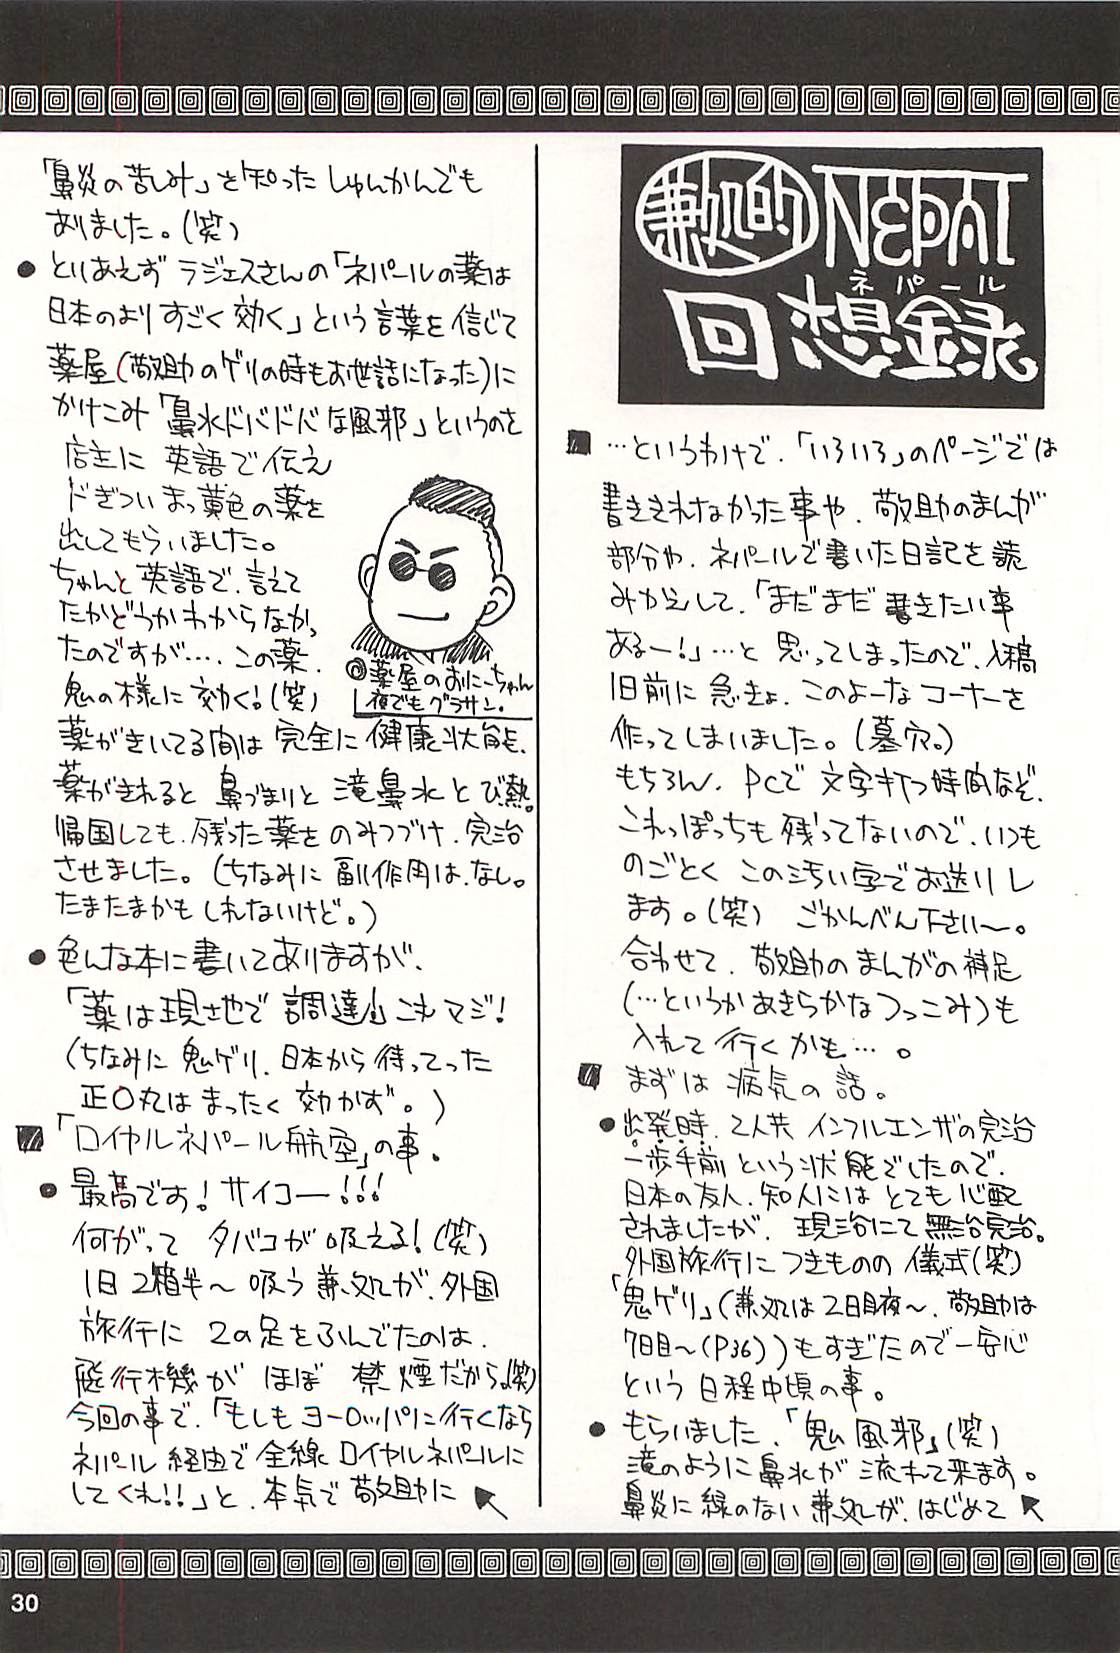 兼処的NEPAL
ネパール
回想録
…というわけで、「いろいろ」のページでは
書ききれなかった事や、敬助のまんが
部分や、ネパールで書いた日記を読
みかえして、「まだまだ書きたい事
あるー!」…と思ってしまったので、入稿
1日前に急きょ、このよーなコーナーを
作ってしまいました。(墓穴。)
もちろん、PCで文字打つ時間など、
これっぽっちも残ってないので、いつも
のごとくこの汚い字でお送りし
ます。(笑) ごかんべん下さい〜。
合わせて、敬助のまんがの補足
(…というかあきらかなつっこみ)も
入れて行くかも…。
まずは病気の話。
出発時、2人共インフルエンザの完治
一歩手前という状態でしたので、
日本の友人、知人にはとても心配
されましたが、現治にて無治完治。
外国旅行につきものの儀式(笑)
「鬼ゲリ」(兼処は2日目夜〜、敬助は
7日目〜(P36))もすぎたので一安心
という日程中頃の事。
もらいました、「鬼風邪」(笑)
滝のように鼻水が流れて来ます。
鼻炎に縁のない兼処が、はじめて
「鼻炎の苦しみ」を知ったしゅんかんでも
ありました。(笑)
とりあえずラジェスさんの「ネパールの薬は
日本のよりすごく効く」という言葉を信じて
薬屋(敬助のゲリの時もお世話になった)に
かけこみ「鼻水ドバドバな風邪」というのを
店主に英語で伝え
ドぎついまっ黄色の薬を
出してもらいました。
ちゃんと英語で、言えて
たかどうかわからなかっ
たのですが…、この薬、
鬼の様に効く!(笑)
◎薬屋のおにーちゃん
夜でもグラサン。
薬がきいてる間は完全に健康状態、
薬がきれると鼻づまりと滝鼻水とび熱。
帰国しても、残った薬をのみつづけ、完治
させました。(ちなみに副作用は、なし。
たまたまかもしれないけど。)
色んな本に書いてありますが、
「薬は現地で調達」これマジ!
(ちなみに鬼ゲリ、日本から持ってった
正〇丸はまったく効かず。)
「ロイヤルネパール航空」の事。
最高です!サイコー!!!
何がってタバコが吸える!(笑)
1日2箱半〜吸う兼処が、外国
旅行に2の足をふんでたのは、
飛行機がほぼ禁煙だから。(笑)
今回の事で、「もしもヨーロッパに行くなら
ネパール経由で全線ロイヤルネパールに
してくれ!!」と、本気で敬助に
30